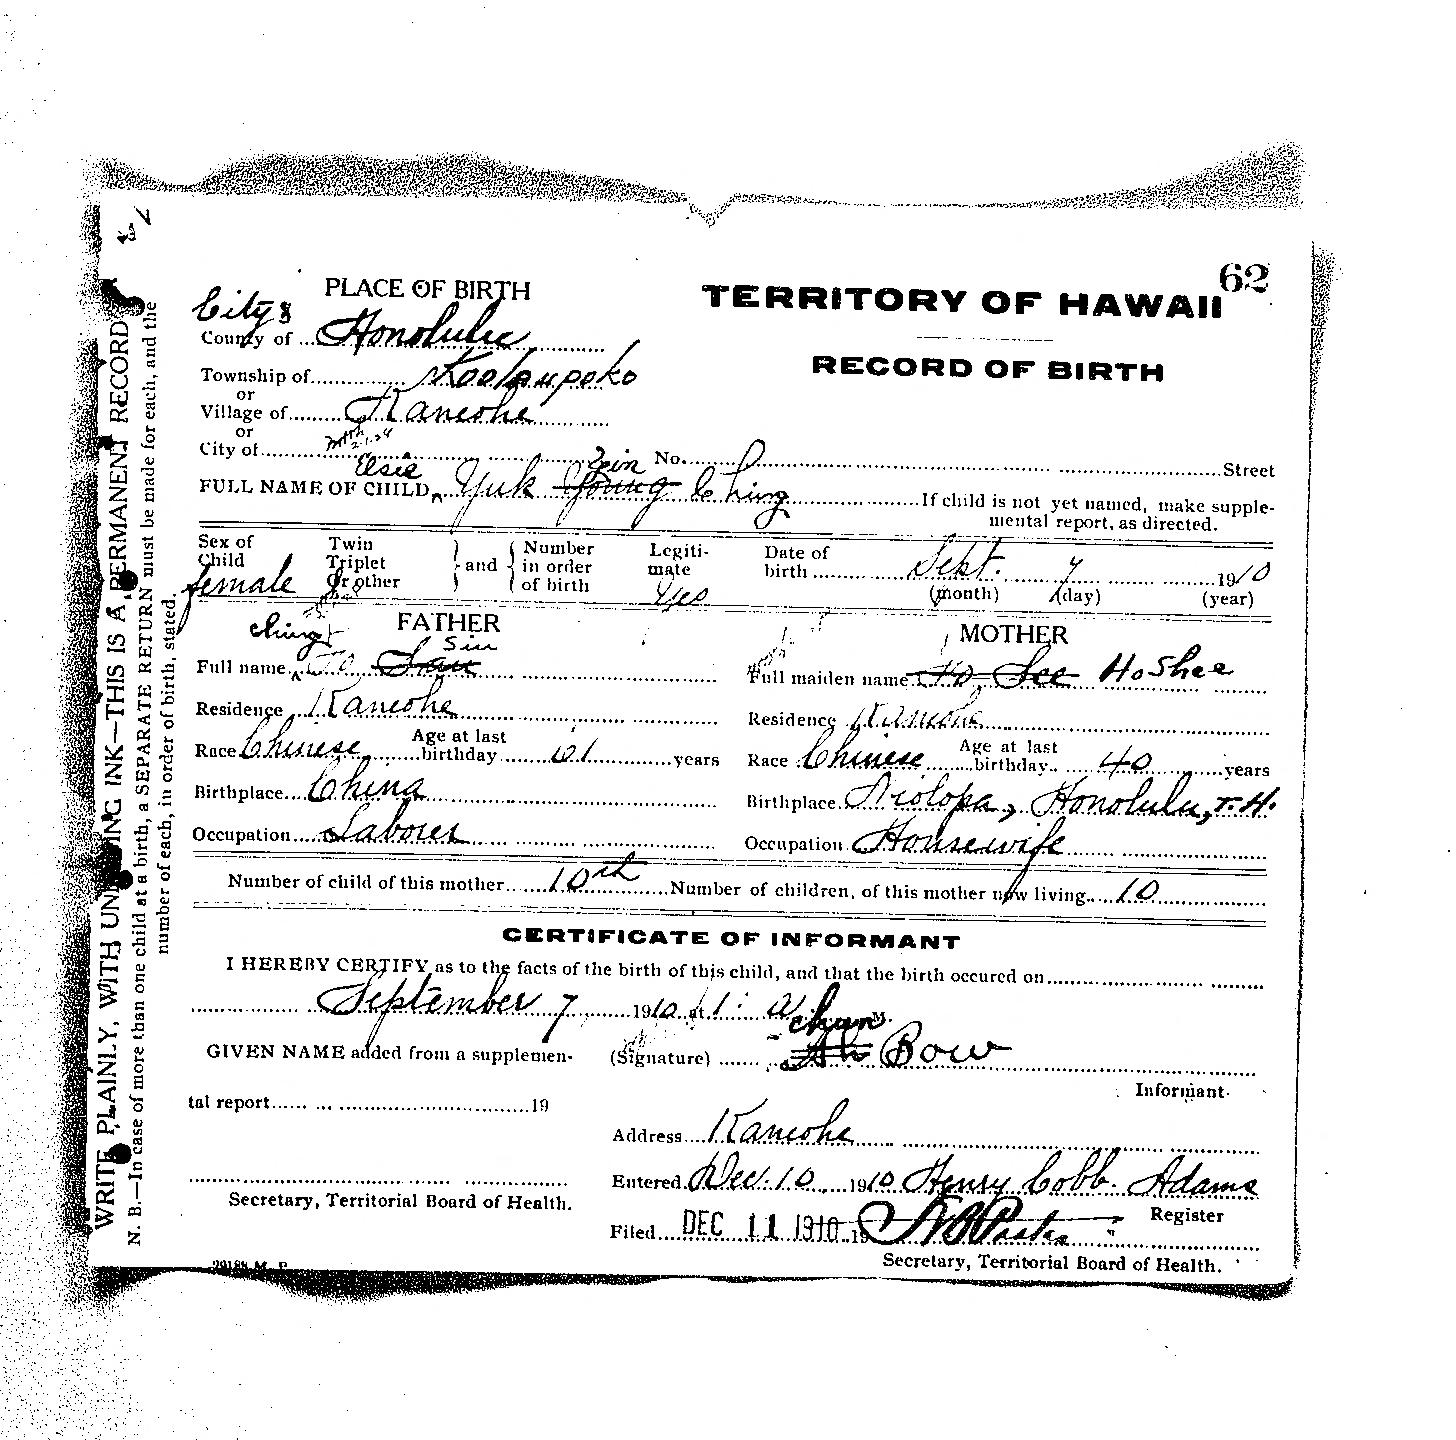 62
PLACE OF BIRTH
TERRITORY OF HAWAII
City &
County of Honolulu
RECORD OF BIRTH
Township of Koolaupoko
or
Village of Kaneohe
or
City of
No. Street
Elsie Zin
FULL NAME OF CHILD Yuk Young Ching If child is not yet named, make supple-
mental report, as directed.
Sex of Child female
Twin Triplet Or other
and
Number in order of birth
Legiti-mate Yes
Date of birth Sept. 7 1910
(month) (day) (year)
FATHER
MOTHER
Ching Sin
Full name
Full maiden name Ho See Ho Shee
Residence Kaneohe
Residence Kaneohe
Race Chinese Age at last birthday 61 years
Race Chinese Age at last birthday 40 years
Birthplace China
Birthplace Niolopa, Honolulu, T. H.
Occupation Laborer
Occupation Housewife
Number of child of this mother 10th Number of children, of this mother now living 10
CERTIFICATE OF INFORMANT
I HEREBY CERTIFY as to the facts of the birth of this child, and that the birth occured on
September 7 1910 at 1: a M.
Chun
GIVEN NAME added from a supplemen-
(Signature) Ah Bow
Informant
tal report 19
Address Kaneohe
Entered Dec. 10 1910 Henry Cobb Adams
Secretary, Territorial Board of Health.
Register
Filed DEC 11 1910 19
Secretary, Territorial Board of Health.
WRITE PLAINLY, WITH UNFADING INK—THIS IS A PERMANENT RECORD
N. B.—In case of more than one child at a birth, a SEPARATE RETURN must be made for each, and the
number of each, in order of birth, stated.